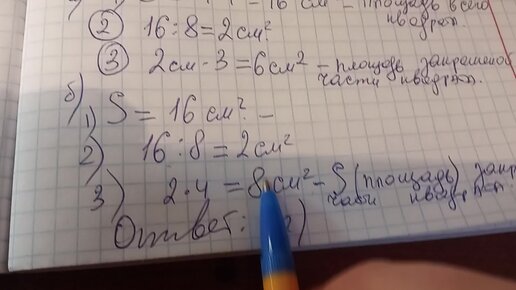 = 16 см² – площадь всего
квадрат.
② 16:8=2см²
③ 2см·3=6см² – площадь закрашеной
части квадрат.
б)
1) S = 16 см². –
2) 16:8=2см²
3) 2·4=8см² – S (площадь) закр
части квадрат.
Ответ: